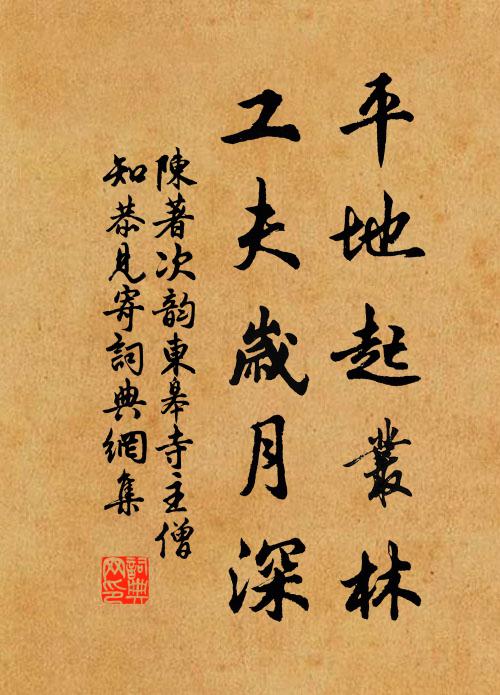 平地起叢林
工夫歲月深
陳著次韵東皋寺主僧
知恭見寄詞典網集
詞典
网印